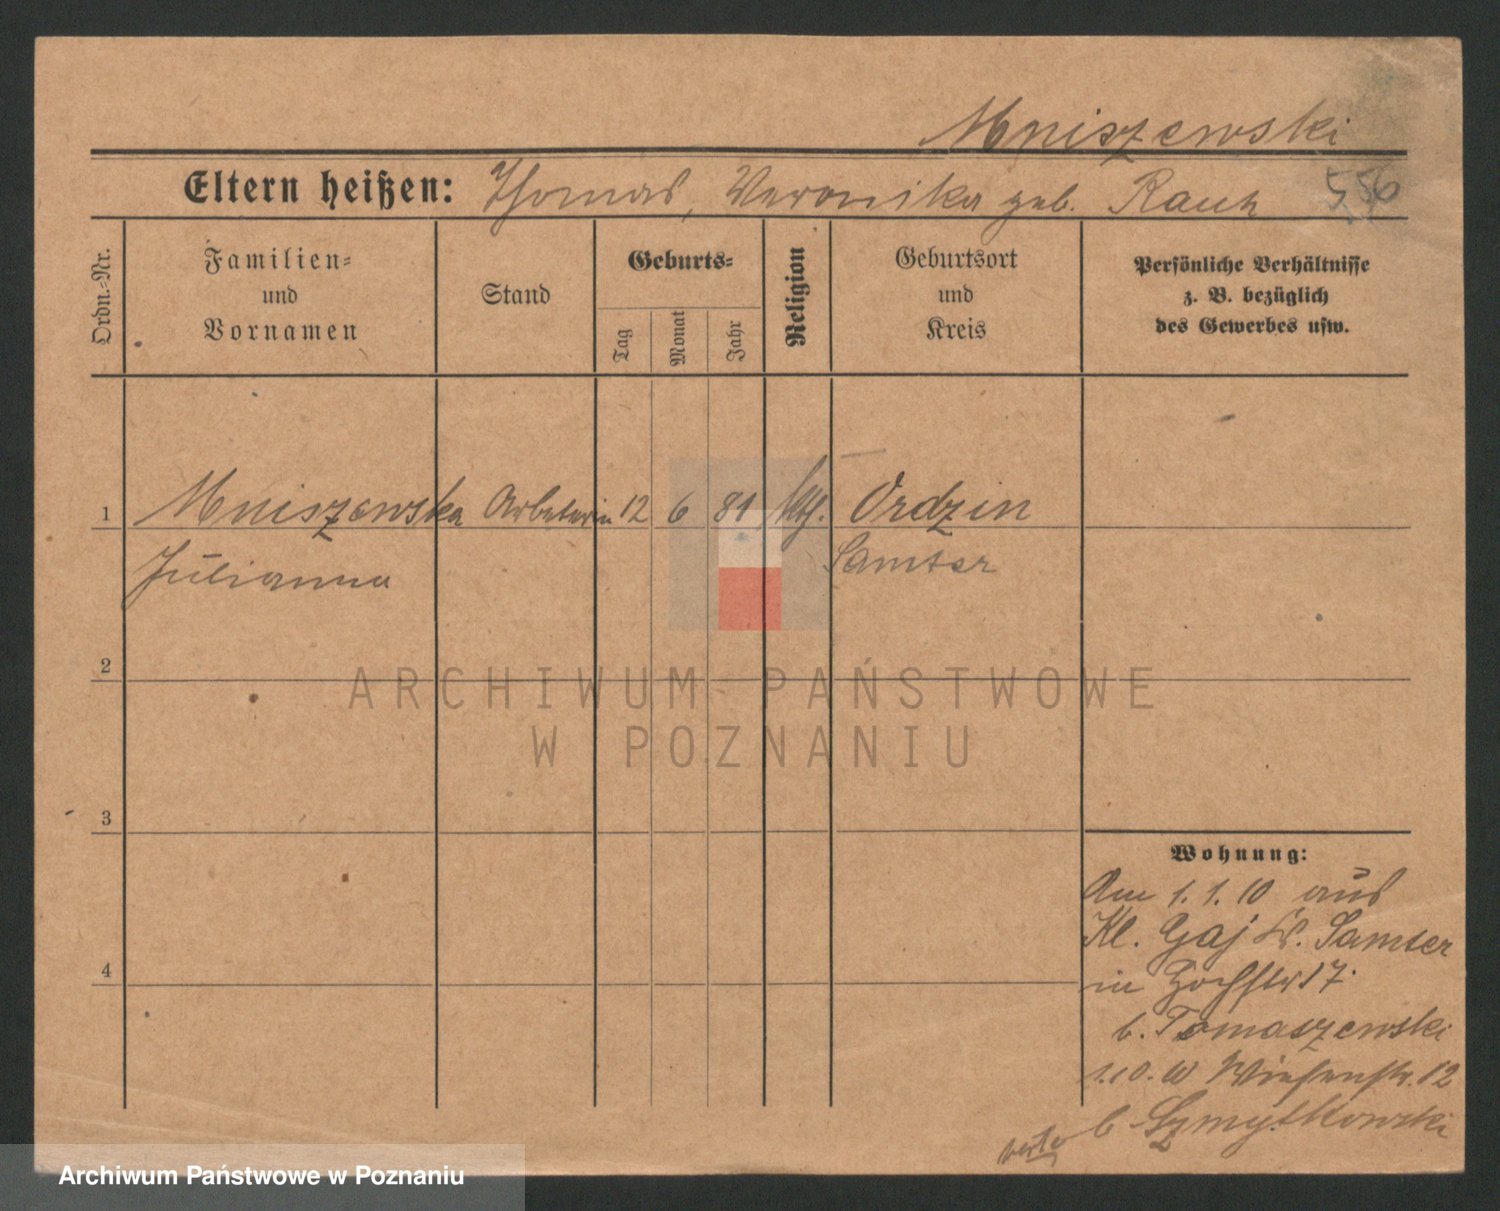 Mniszewski
Eltern heißen: Thomas, Veronika geb. Rauk
556
Ordn.-Nr.
Familien-
und
Vornamen
Stand
Geburts-
Tag
Monat
Jahr
Religion
Geburtsort
und
Kreis
Persönliche Verhältnisse
z. B. bezüglich
des Gewerbes usw.
1 Mniszewska Arbeterin 12 6 81 kth. Ordzin
Julianna Samter
2
3
4
Wohnung:
Am 1.1.10 aus
Kl. Gaj Kr. Samter
in 17
b. Tomaszewski
1.10. W Wiesenstr. 12
b Szmytkowski
verte
ARCHIWUM PAŃSTWOWE
W POZNANIU
Archiwum Państwowe w Poznaniu